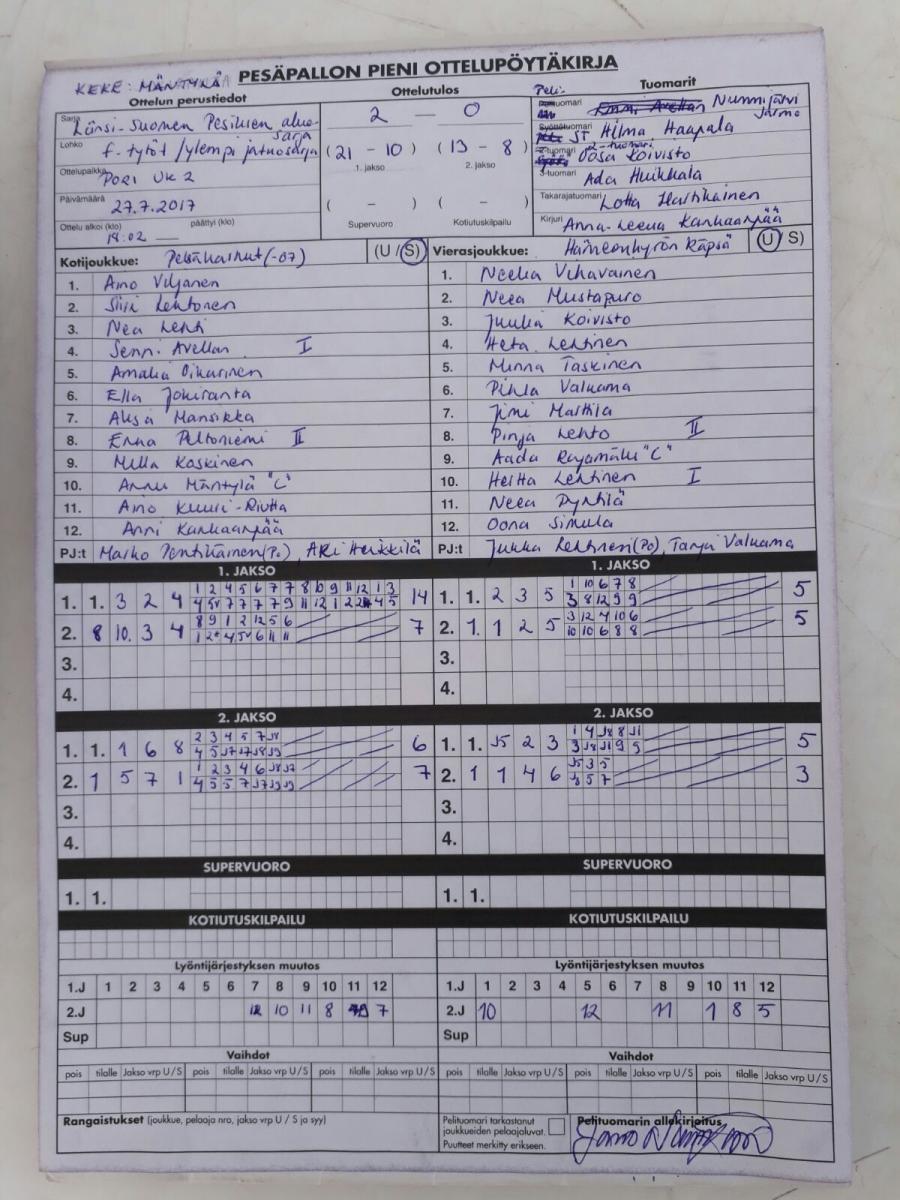 KEKE: MÄNTYLÄ
PESÄPALLON PIENI OTTELUPÖYTÄKIRJA
Ottelun perustiedot
Ottelutulos
Tuomarit
Sarja Länsi-Suomen Pesiksen alue-
sarja
Lohko f-tytöt / ylempi jatkosarja
Ottelupaikka PORI UK 2
Päivämäärä 27.7.2017
Ottelu alkoi (klo) päättyi (klo)
18:02
2 — 0
(21 – 10) (13 – 8)
1. jakso 2. jakso
( – ) ( – )
Supervuoro Kotiutuskilpailu
Peli-
tuomari Nummijärvi
Jarmo
Syöttötuomari ST Hilma Haapala
2-tuomari Koivisto
3-tuomari Ada Huikkala
Takarajatuomari Lotta Hartikainen
Kirjuri Anna-Leena Kankaanpää
Kotijoukkue: Pesäkarhut (-07) (U/S)
1. Aino Viljanen
2. Siiri Lehtonen
3. Nea Lehti
4. Senni Avellan I
5. Amalia Oikarinen
6. Ella Jokiranta
7. Aksa Mansikka
8. Enna Peltoniemi II
9. Milla Koskinen
10. Annu Mäntylä "C"
11. Aino Kuuri-Riutta
12. Anni Kankaanpää
PJ:t Marko Pentikäinen (Po), ARI Heikkilä
Vierasjoukkue: Hämeenkyrön Käpsä (U/S)
1. Neelia Vihavainen
2. Neea Mustapuro
3. Juulia Koivisto
4. Heta Lehtinen
5. Minna Taskinen
6. Pihla Valkama
7. Jimi Marttila
8. Pinja Lehto II
9. Aada Rajamäki "C"
10. Hertta Lehtinen I
11. Neea Pyntilä
12. Oona Simula
PJ:t Jukka Lehtinen (Po), Tanja Valkama
1. JAKSO
1. 1. 3 2 4 1 2 4 5 6 7 7 8 10 9 11 12 1 3 14
2. 8 10. 3 4 8 9 1 2 12 5 6 7
3.
4.
1. JAKSO
1. 1. 2 3 5 1 10 6 7 8 5
3 8 12 9 9
2. 1. 1 2 5 3 12 4 10 6 5
10 10 6 8 8
3.
4.
2. JAKSO
1. 1. 1 6 8 6
2. 1 5 7 1 7
3.
4.
2. JAKSO
1. 1. J5 2 3 5
2. 1 1 4 6 J5 3 5 3
3.
4.
SUPERVUORO
1. 1.
SUPERVUORO
1. 1.
KOTIUTUSKILPAILU
KOTIUTUSKILPAILU
Lyöntijärjestyksen muutos
1.J 1 2 3 4 5 6 7 8 9 10 11 12
2.J 12 10 11 8 7
Sup
Lyöntijärjestyksen muutos
1.J 1 2 3 4 5 6 7 8 9 10 11 12
2.J 10 12 11 1 8 5
Sup
Vaihdot
pois tilalle Jakso vrp U/S pois tilalle Jakso vrp U/S pois tilalle Jakso vrp U/S
Vaihdot
pois tilalle Jakso vrp U/S pois tilalle Jakso vrp U/S pois tilalle Jakso vrp U/S
Rangaistukset (joukkue, pelaaja nro, jakso vrp U / S ja syy)
Pelituomari tarkastanut
joukkueiden pelaajaluvat.
Puutteet merkitty erikseen.
Pelituomarin allekirjoitus